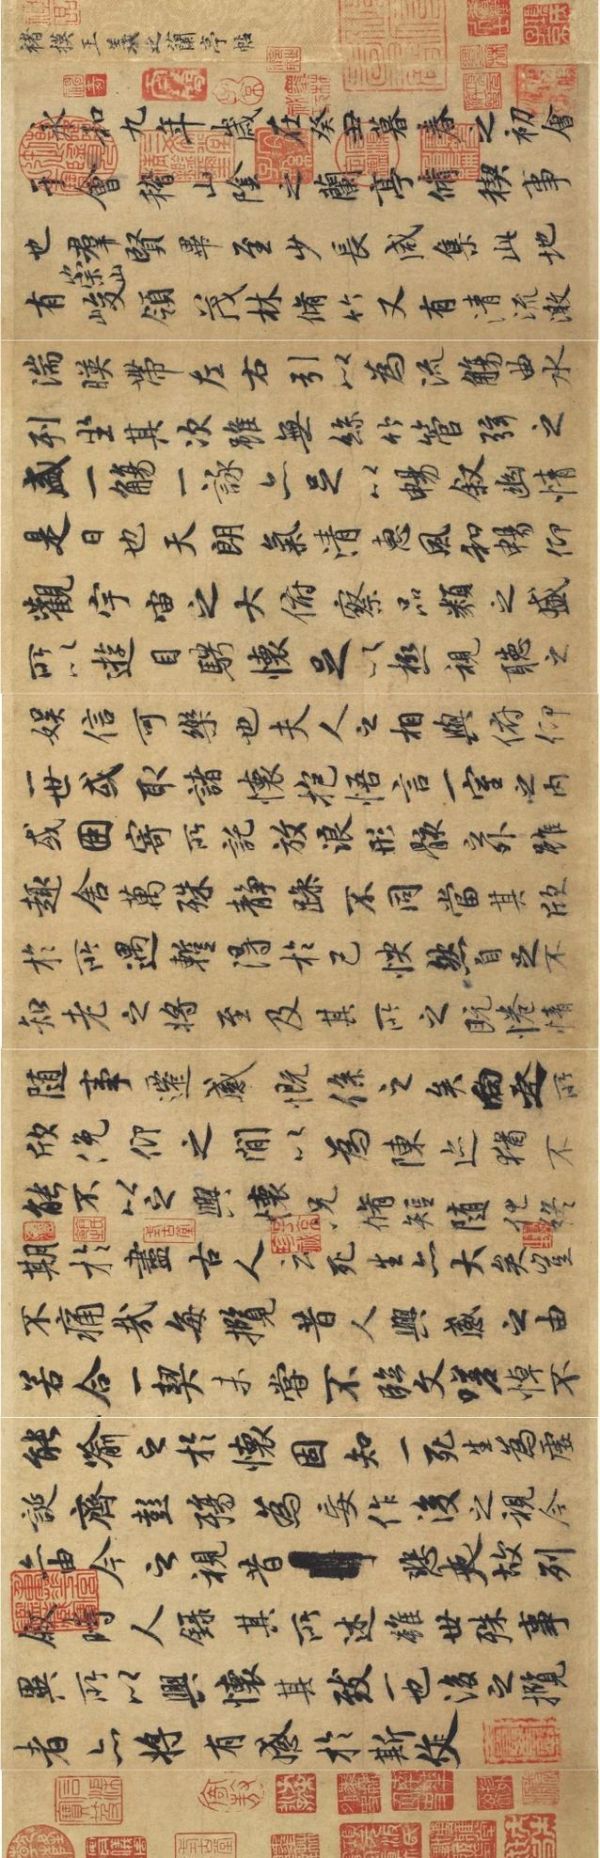 褚模王羲之蘭亭帖
永和九年歲在癸丑暮春之初會
于會稽山陰之蘭亭脩稧事
也羣賢畢至少長咸集此地
有崇山峻領茂林脩竹又有清流激
湍暎帶左右引以為流觴曲水
列坐其次雖無絲竹管弦之
盛一觴一詠亦足以暢敘幽情
是日也天朗氣清惠風和暢仰
觀宇宙之大俯察品類之盛
所以遊目騁懷足以極視聽之
娛信可樂也夫人之相與俯仰
一世或取諸懷抱悟言一室之內
或因寄所託放浪形骸之外雖
趣舍萬殊靜躁不同當其欣
於所遇蹔得於己怏然自足不
知老之將至及其所之既惓情
隨事遷感慨係之矣向之所
欣俛仰之閒以為陳迹猶不
能不以之興懷況脩短隨化終
期於盡古人云死生亦大矣豈
不痛哉每攬昔人興感之由
若合一契未嘗不臨文嗟悼不
能喻之於懷固知一死生為虛
誕齊彭殤為妄作後之視今
亦由今之視昔悲夫故列
敘時人錄其所述雖世殊事
異所以興懷其致一也後之攬
者亦將有感於斯作